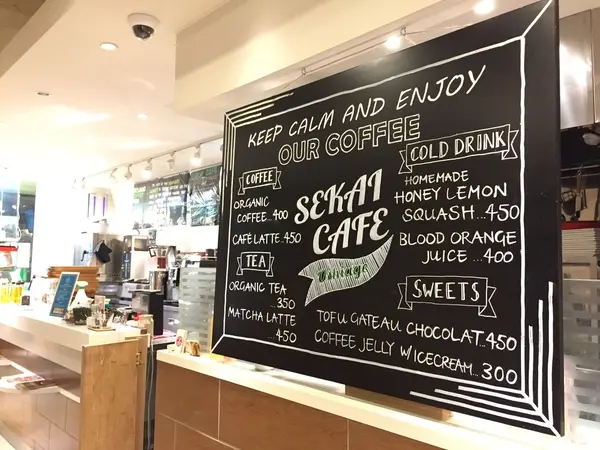 KEEP CALM AND ENJOY
OUR COFFEE
COFFEE
ORGANIC
COFFEE...400
CAFÉ LATTE.450
TEA
ORGANIC TEA
...350
MATCHA LATTE
...450
SEKAI
CAFE
COLD DRINK
HOMEMADE
HONEY LEMON
SQUASH...450
BLOOD ORANGE
JUICE ...400
SWEETS
TOFU GATEAU CHOCOLAT...450
COFFEE JELLY W/ICECREAM...300